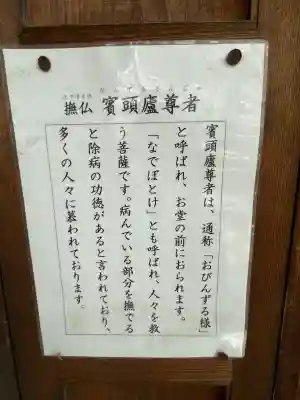 撫仏 賓頭廬尊者
賓頭廬尊者は、通称「おびんずる様」
と呼ばれ、お堂の前におられます。
「なでぼとけ」とも呼ばれ、人々を救
う菩薩です。病んでいる部分を撫でる
と除病の功徳があると言われており、
多くの人々に慕われております。